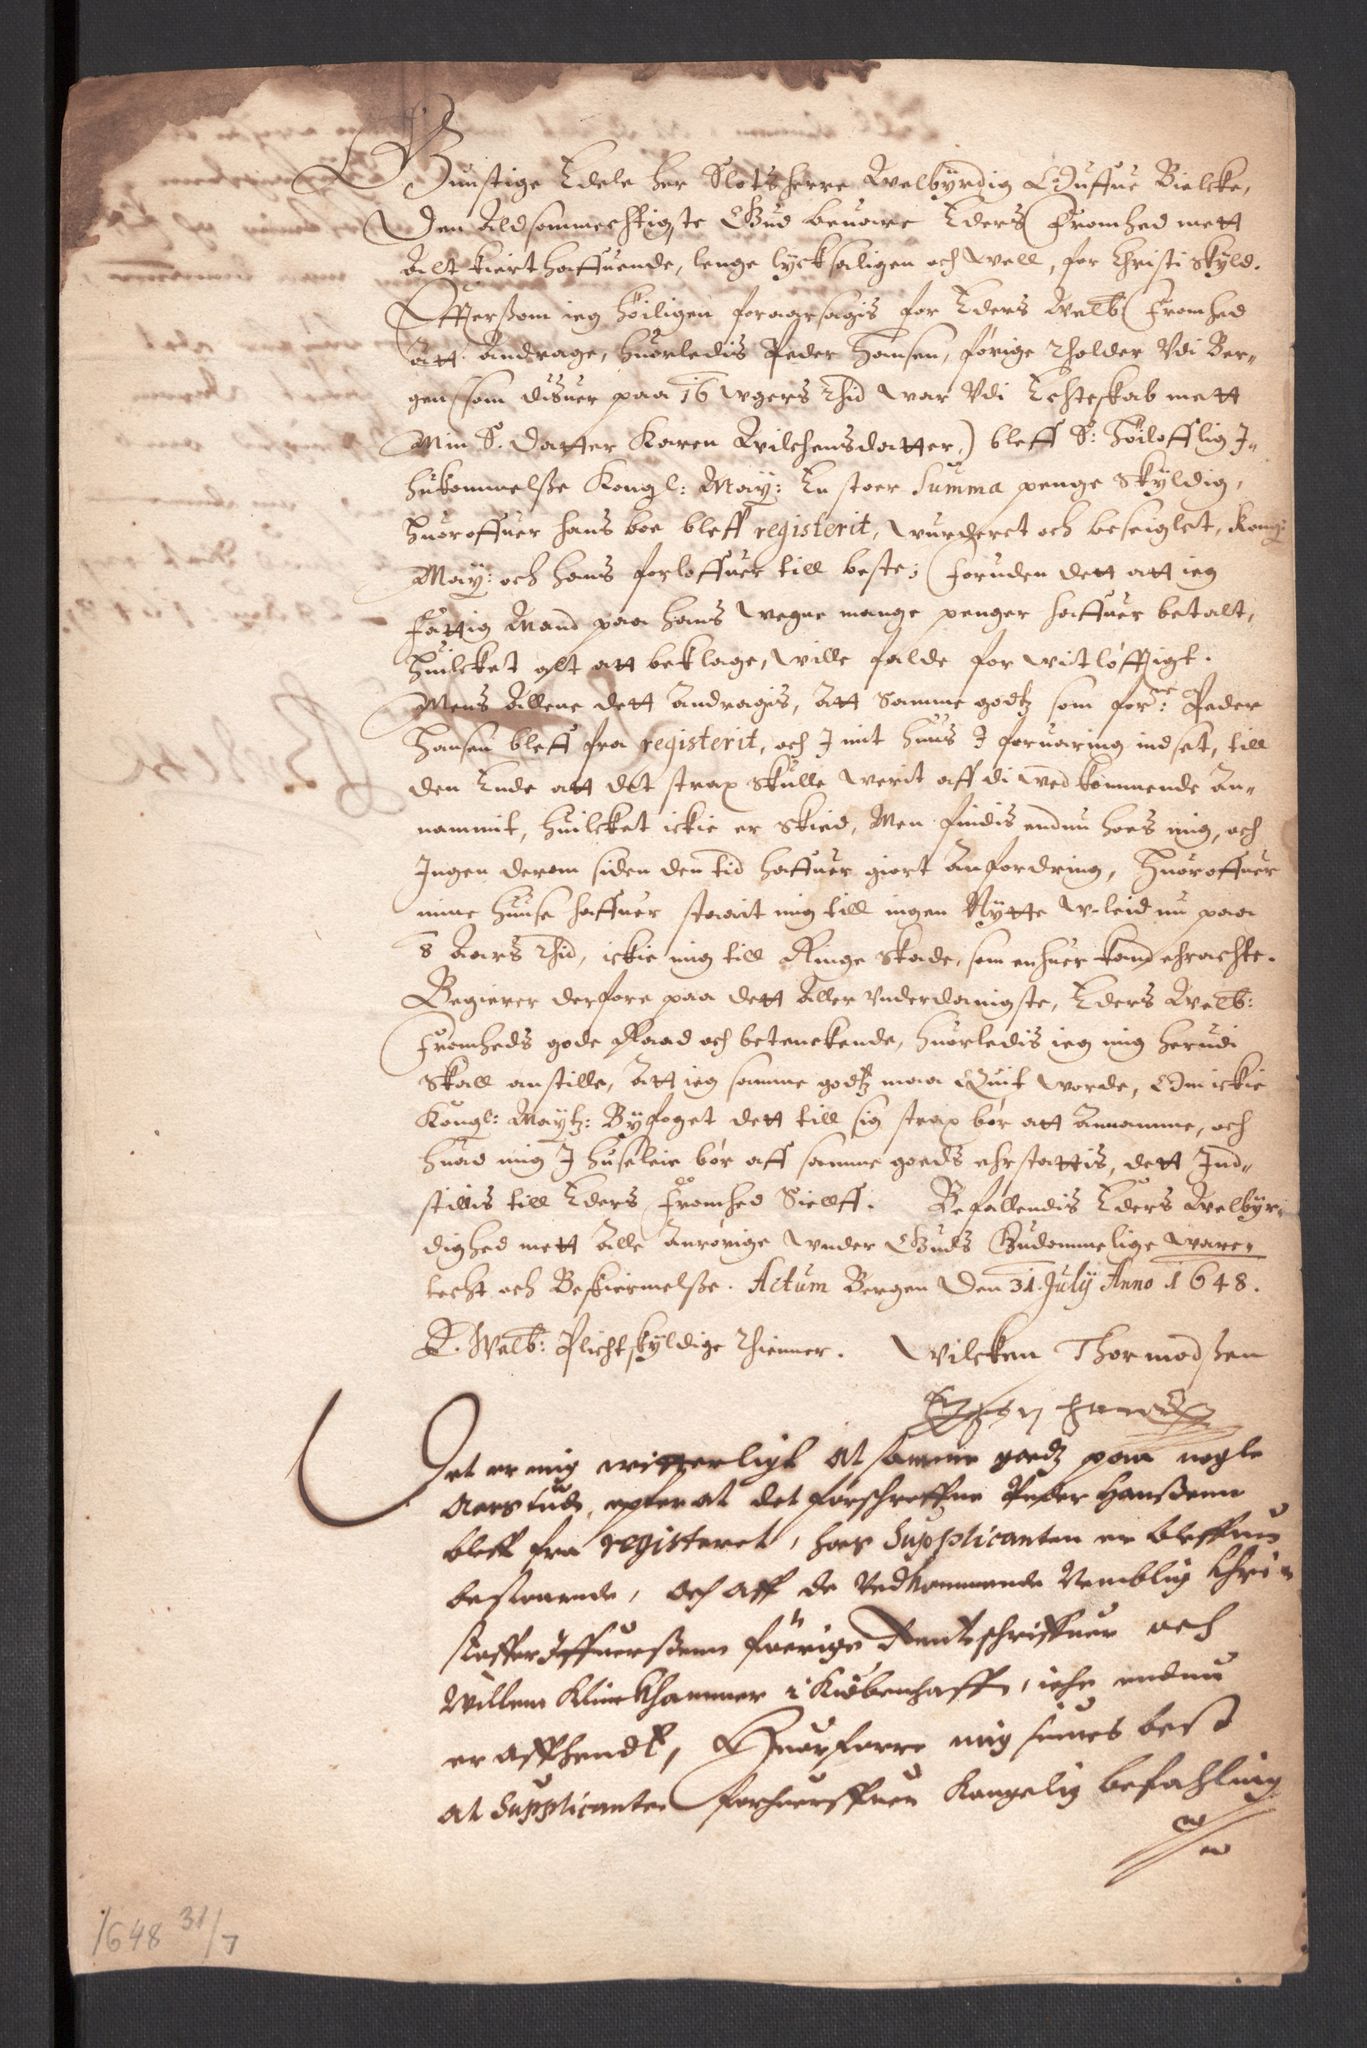 Gunstige Edele her Slotzherre Welbyrdig Ouffue Bielcke,
Den Aldsommechtigste Gud beuare Eders Fromhed mett
Alt kiert haffuende, lenge lycksaligen och well, for Christi skyld.
Effterßom ieg höiligen foraarsagis for Eders Welb: Fromhed
Att Andrage, huorledis Peder Hansen, förige Tholder Vdi Ber-
gen (som disuer paa 16 wgers Thid war Vdi Echteskab mett
Min S. Datter Karen Wilchensdatter,) bleff S: Höilofflig J-
hukommelße Kongl: May: En stoer Summa penge Skyldig,
Huoroffuer hans boe bleff registerit, wurderet och beseiglet, Kong:
May: och hans forloffuer till beste; Foruden dett att ieg
Fattig Mand paa hans wegne mange penger haffuer betalt,
Huilcket alt att beklage, wille falde for witlöfftigt.
Mens Allene dett Andragis, Att samme godtz som forne: Peder
Hansen bleff fra registerit, och J mit huus J foruaring indset, till
den Ende att det strax skulle werit aff di wedkommende An-
nammit, huilcket ickie er skied, Men findis endnu hoes mig, och
Jngen derom siden den tid haffuer giort Anfordring, Huoroffuer
mine Huuse haffuer staait mig till ingen Nytte w-leid nu paa
8 Aars Thid, ickie mig till Ringe skade, som enhuer kand ehrachte.
Begierer derfore paa dett Aller vnderdanigste, Eders Welb:
Fromheds gode Raad och betenckende, huorledis ieg mig herudi
Skall anstille, Att ieg samme godtz maa Quit worde, Om ickie
Kongl: Maytz: Byfoget dett till sig strax bör att Annamme, och
huad mig J Huseleie bör aff samme goeds ehrstattis, dett Jnd-
stillis till Eders Fromhed Sielff. Befallendis Eders Welbyr-
dighed mett Alle Anrörige wnder Guds Gudommelige ware-
techt och Beskiermelße. Actum Bergen Den 31. July Anno 1648.
E. Welb: Plichtskyldige Thienner. Wilcken Thormodßen
Egen Hand
Det er mig witterligt at samme goedz paa nogle
Aars tid, epter at det forschreffne Peder Hanßenn
bleff fra registeret, hoes Supplicanten er bleffuen
bestaaende, och aff de Vedkommende Nemblig Chri-
stoffer Iffuerßenn föerige Rentschriffuer och
Willem Klinckhammer i Kiøbenhaffn, iche endnu
er affhendt, Huorforre mig siunes best
at Supplicanten forhuerffuer Kongelig befahling
1648 31/7